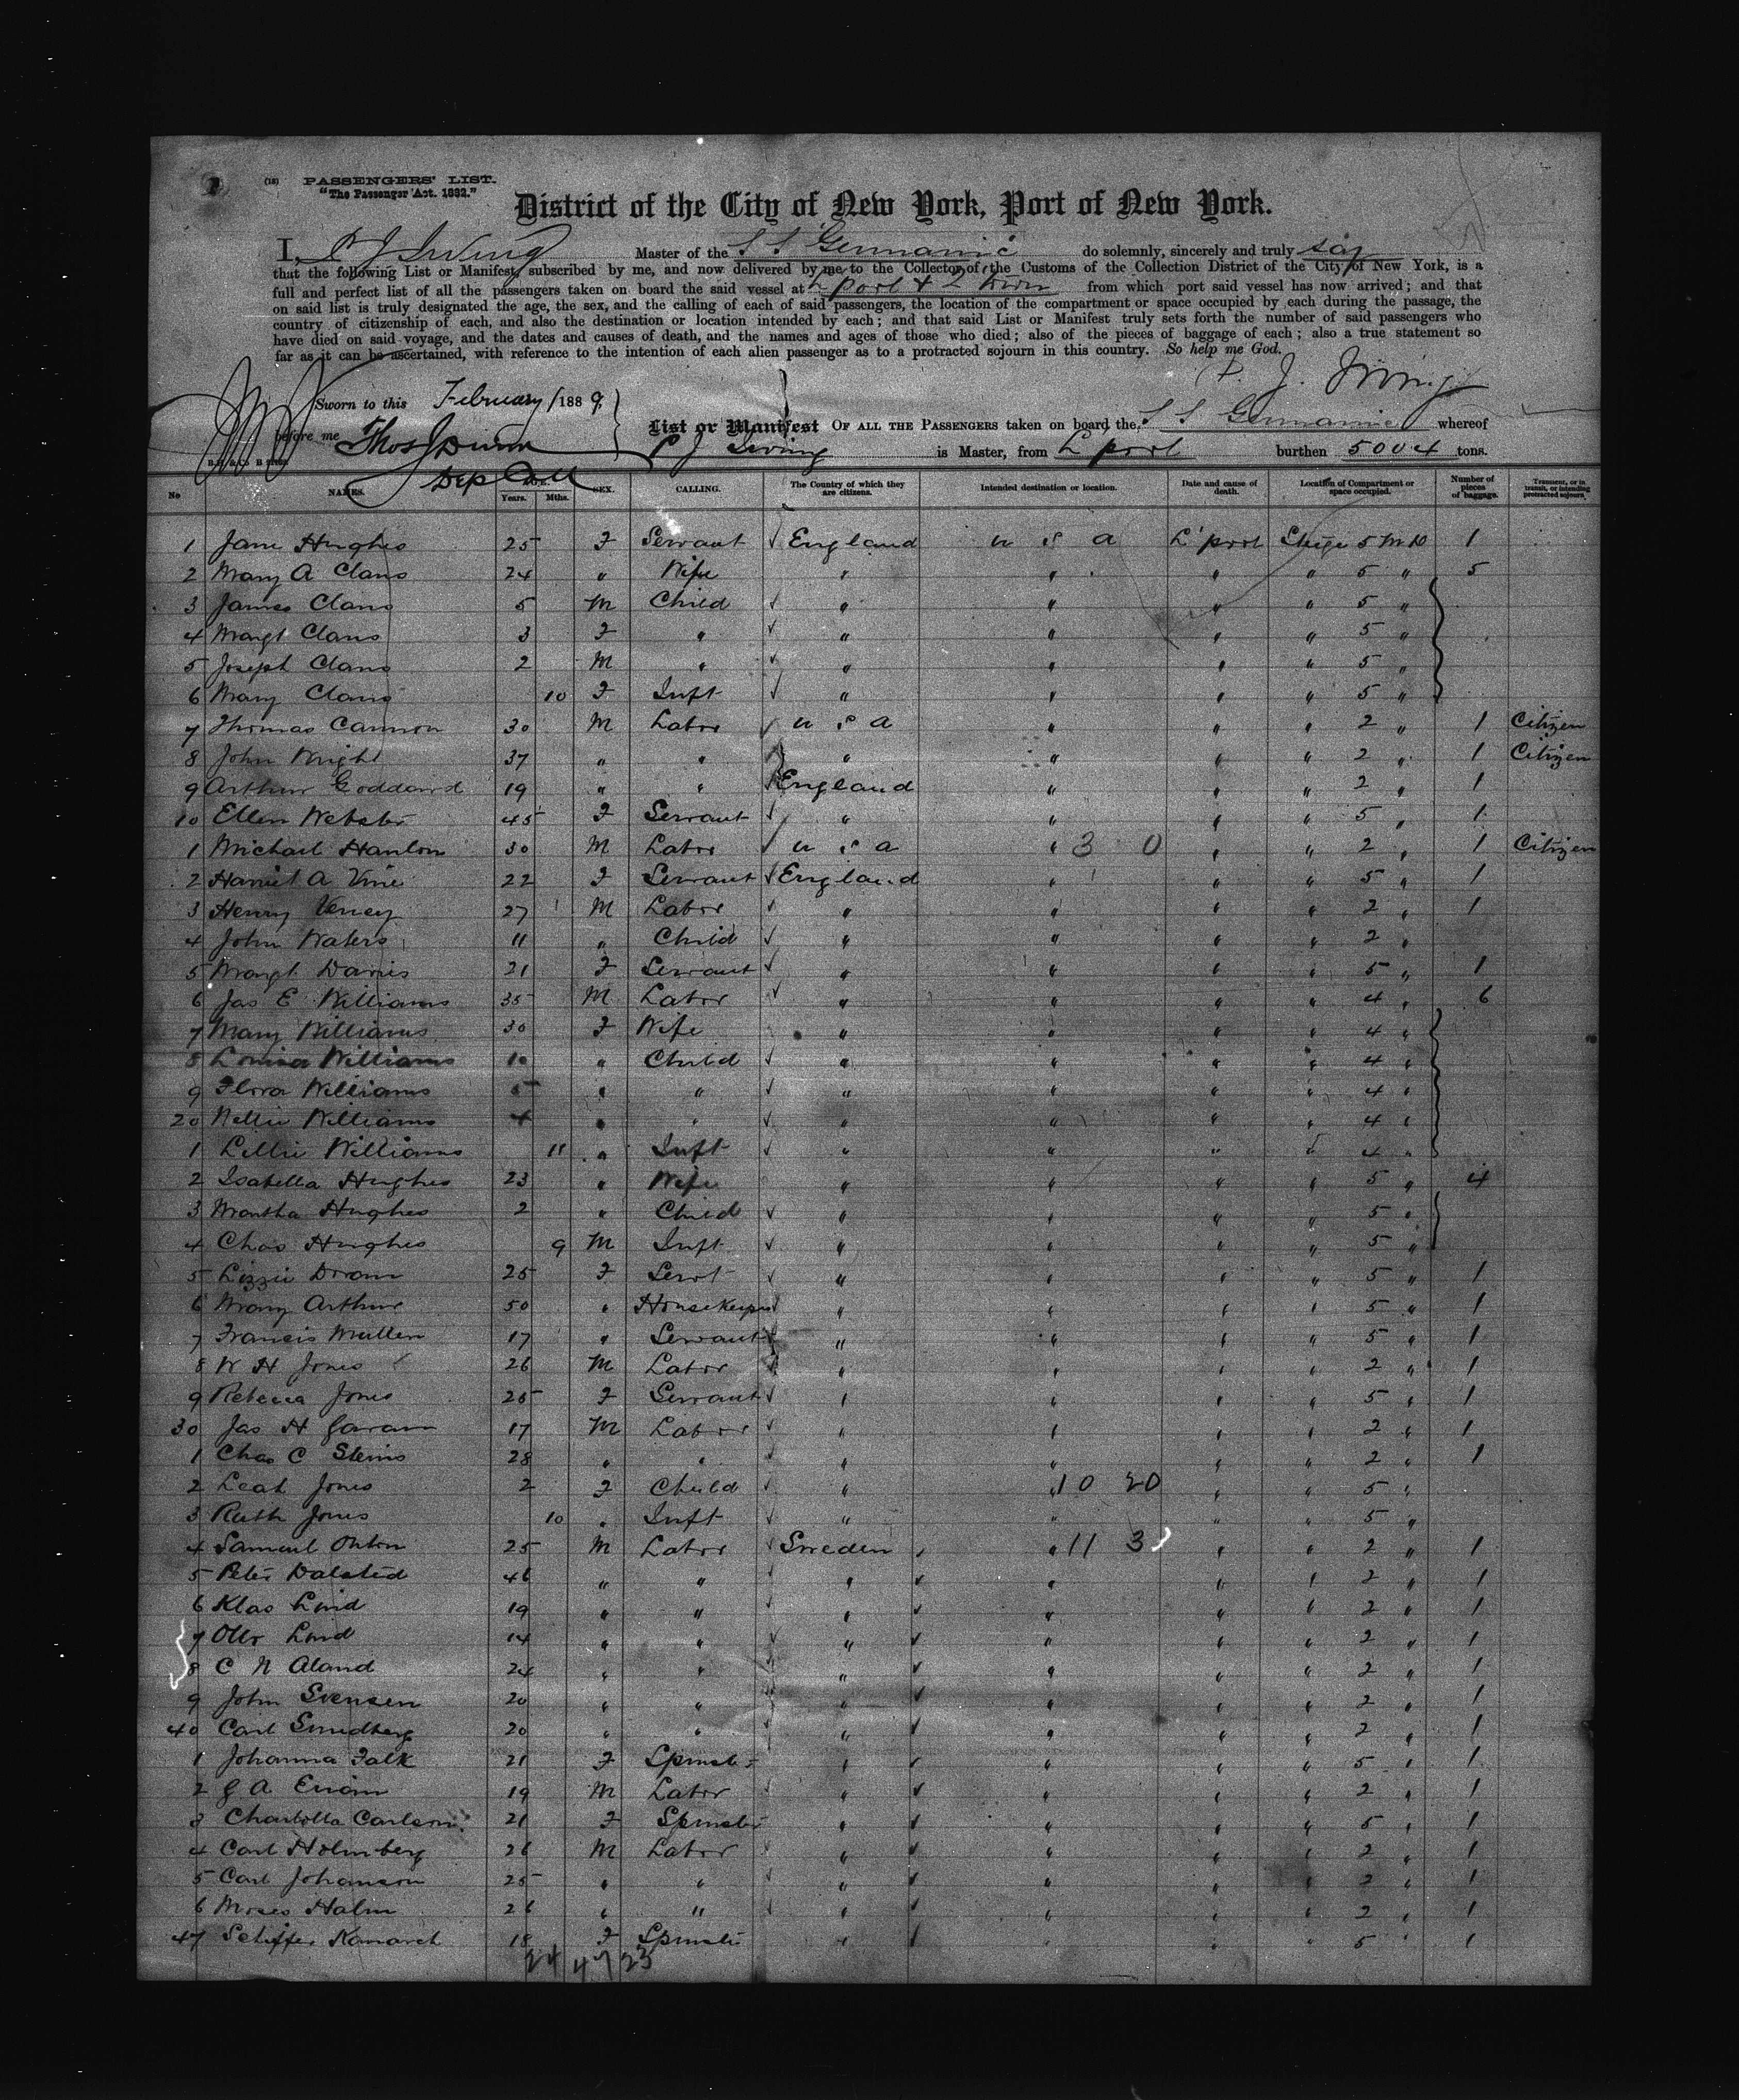 1
(18) PASSENGERS' LIST.
"The Passenger Act. 1882."
District of the City of New York, Port of New York.
I, P J Irving Master of the S S Germanic do solemnly, sincerely and truly say
that the following List or Manifest, subscribed by me, and now delivered by me to the Collector of the Customs of the Collection District of the City of New York, is a
full and perfect list of all the passengers taken on board the said vessel at L'pool & Q'town from which port said vessel has now arrived; and that
on said list is truly designated the age, the sex, and the calling of each of said passengers, the location of the compartment or space occupied by each during the passage, the
country of citizenship of each, and also the destination or location intended by each; and that said List or Manifest truly sets forth the number of said passengers who
have died on said voyage, and the dates and causes of death, and the names and ages of those who died; also of the pieces of baggage of each; also a true statement so
far as it can be ascertained, with reference to the intention of each alien passenger as to a protracted sojourn in this country. So help me God.
P. J. Irving
Sworn to this February / 1889
before me Thos J Dunn
Dep Coll
List or Manifest OF ALL THE PASSENGERS taken on board the S S Germanic whereof
P J Irving is Master, from L'pool burthen 5004 tons.
No NAMES. AGE. Years. Mths. SEX. CALLING. The Country of which they are citizens. Intended destination or location. Date and cause of death. Location of Compartment or space occupied. Number of pieces of baggage. Transient, or in transit, or intending protracted sojourn.
1 Jane Hughes 25 F Servant England U S A L'pool 5 1
2 Mary A Clans 24 " Wife " " " " 5 " 5
3 James Clans 5 M Child " " " " 5 "
4 Margt Clans 3 F " " " " " 5 "
5 Joseph Clans 2 M " " " " " 5 "
6 Mary Clans 10 F Inft " " " " 5 "
7 Thomas Cannon 30 M Labor U S A " " " 2 " 1 Citizen
8 John Knight 37 " " " " " " 2 " 1 Citizen
9 Arthur Goddard 19 " " England " " " 2 " 1
10 Ellen Webster 45 F Servant " " " " 5 " 1
1 Michael Hanlon 30 M Labor U S A " 3 0 " " 2 " 1 Citizen
2 Harriet A Vine 22 F Servant England " " " 5 " 1
3 Henry Veney 27 M Labor " " " " 2 " 1
4 John Waters 11 " Child " " " " 2 "
5 Margt Davies 21 F Servant " " " " 5 " 1
6 Jas E Williams 35 M Labor " " " " 4 " 6
7 Mary Williams 30 F Wife " " " " 4 "
8 Louisa Williams 10 " Child " " " " 4 "
9 Flora Williams 5 " " " " " " 4 "
20 Nellie Williams 4 " " " " " " 4 "
1 Lillie Williams 11 " Inft " " " " 4 "
2 Isabella Hughes 23 " Wife " " " " 5 " 4
3 Martha Hughes 2 " Child " " " " 5 "
4 Chas Hughes 9 M Inft " " " " 5 "
5 Lizzie Doran 25 F Servt " " " " 5 " 1
6 Mary Arthur 50 " Housekeeper " " " " 5 " 1
7 Francis Mullen 17 " Servant " " " " 5 " 1
8 W H Jones 26 M Labor " " " " 2 " 1
9 Rebecca Jones 25 F Servant " " " " 5 " 1
30 Jas H 17 M Labor " " " " 2 " 1
1 Chas C 28 " " " " " " 2 " 1
2 Leah Jones 2 F Child " " 10 20 " " 5 "
3 Ruth Jones 10 " Inft " " " " 5 "
4 Samuel 25 M Labor Sweden " 11 3 " " 2 " 1
5 Peter Dalsted 46 " " " " " " 2 " 1
6 Klas Lind 19 " " " " " " 2 " 1
7 Lind 14 " " " " " " 2 " 1
8 C N Aland 24 " " " " " " 2 " 1
9 John Svensen 20 " " " " " " 2 " 1
40 Carl Sundberg 20 " " " " " " 2 " 1
1 Johanna Falk 21 F Spinster " " " " 5 " 1
2 G A 19 M Labor " " " " 2 " 1
3 Charlotta Carlson 21 F Spinster " " " " 5 " 1
4 Carl Holmberg 26 M Labor " " " " 2 " 1
5 Carl Johanson 25 " " " " " " 2 " 1
6 Moses Halm 26 " " " " " " 2 " 1
47 18 F Spinster " " " " 5 " 1
24 47 23